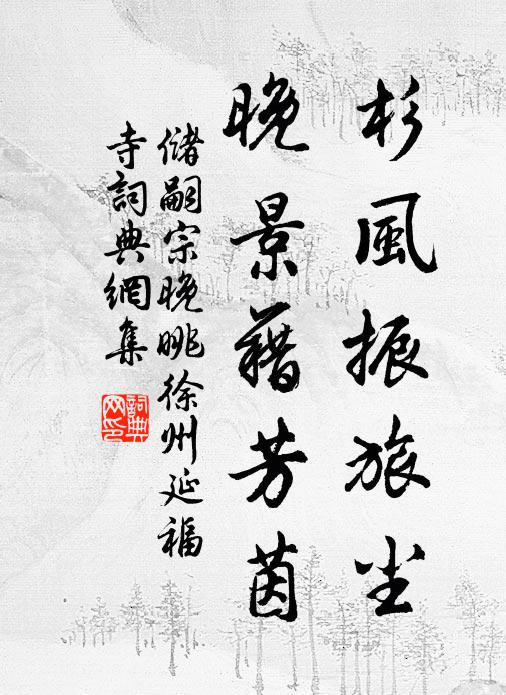 杉風振旅尘
晚景藉芳茵
儲嗣宗晚眺徐州延福
寺詞典網集
詞典
网印